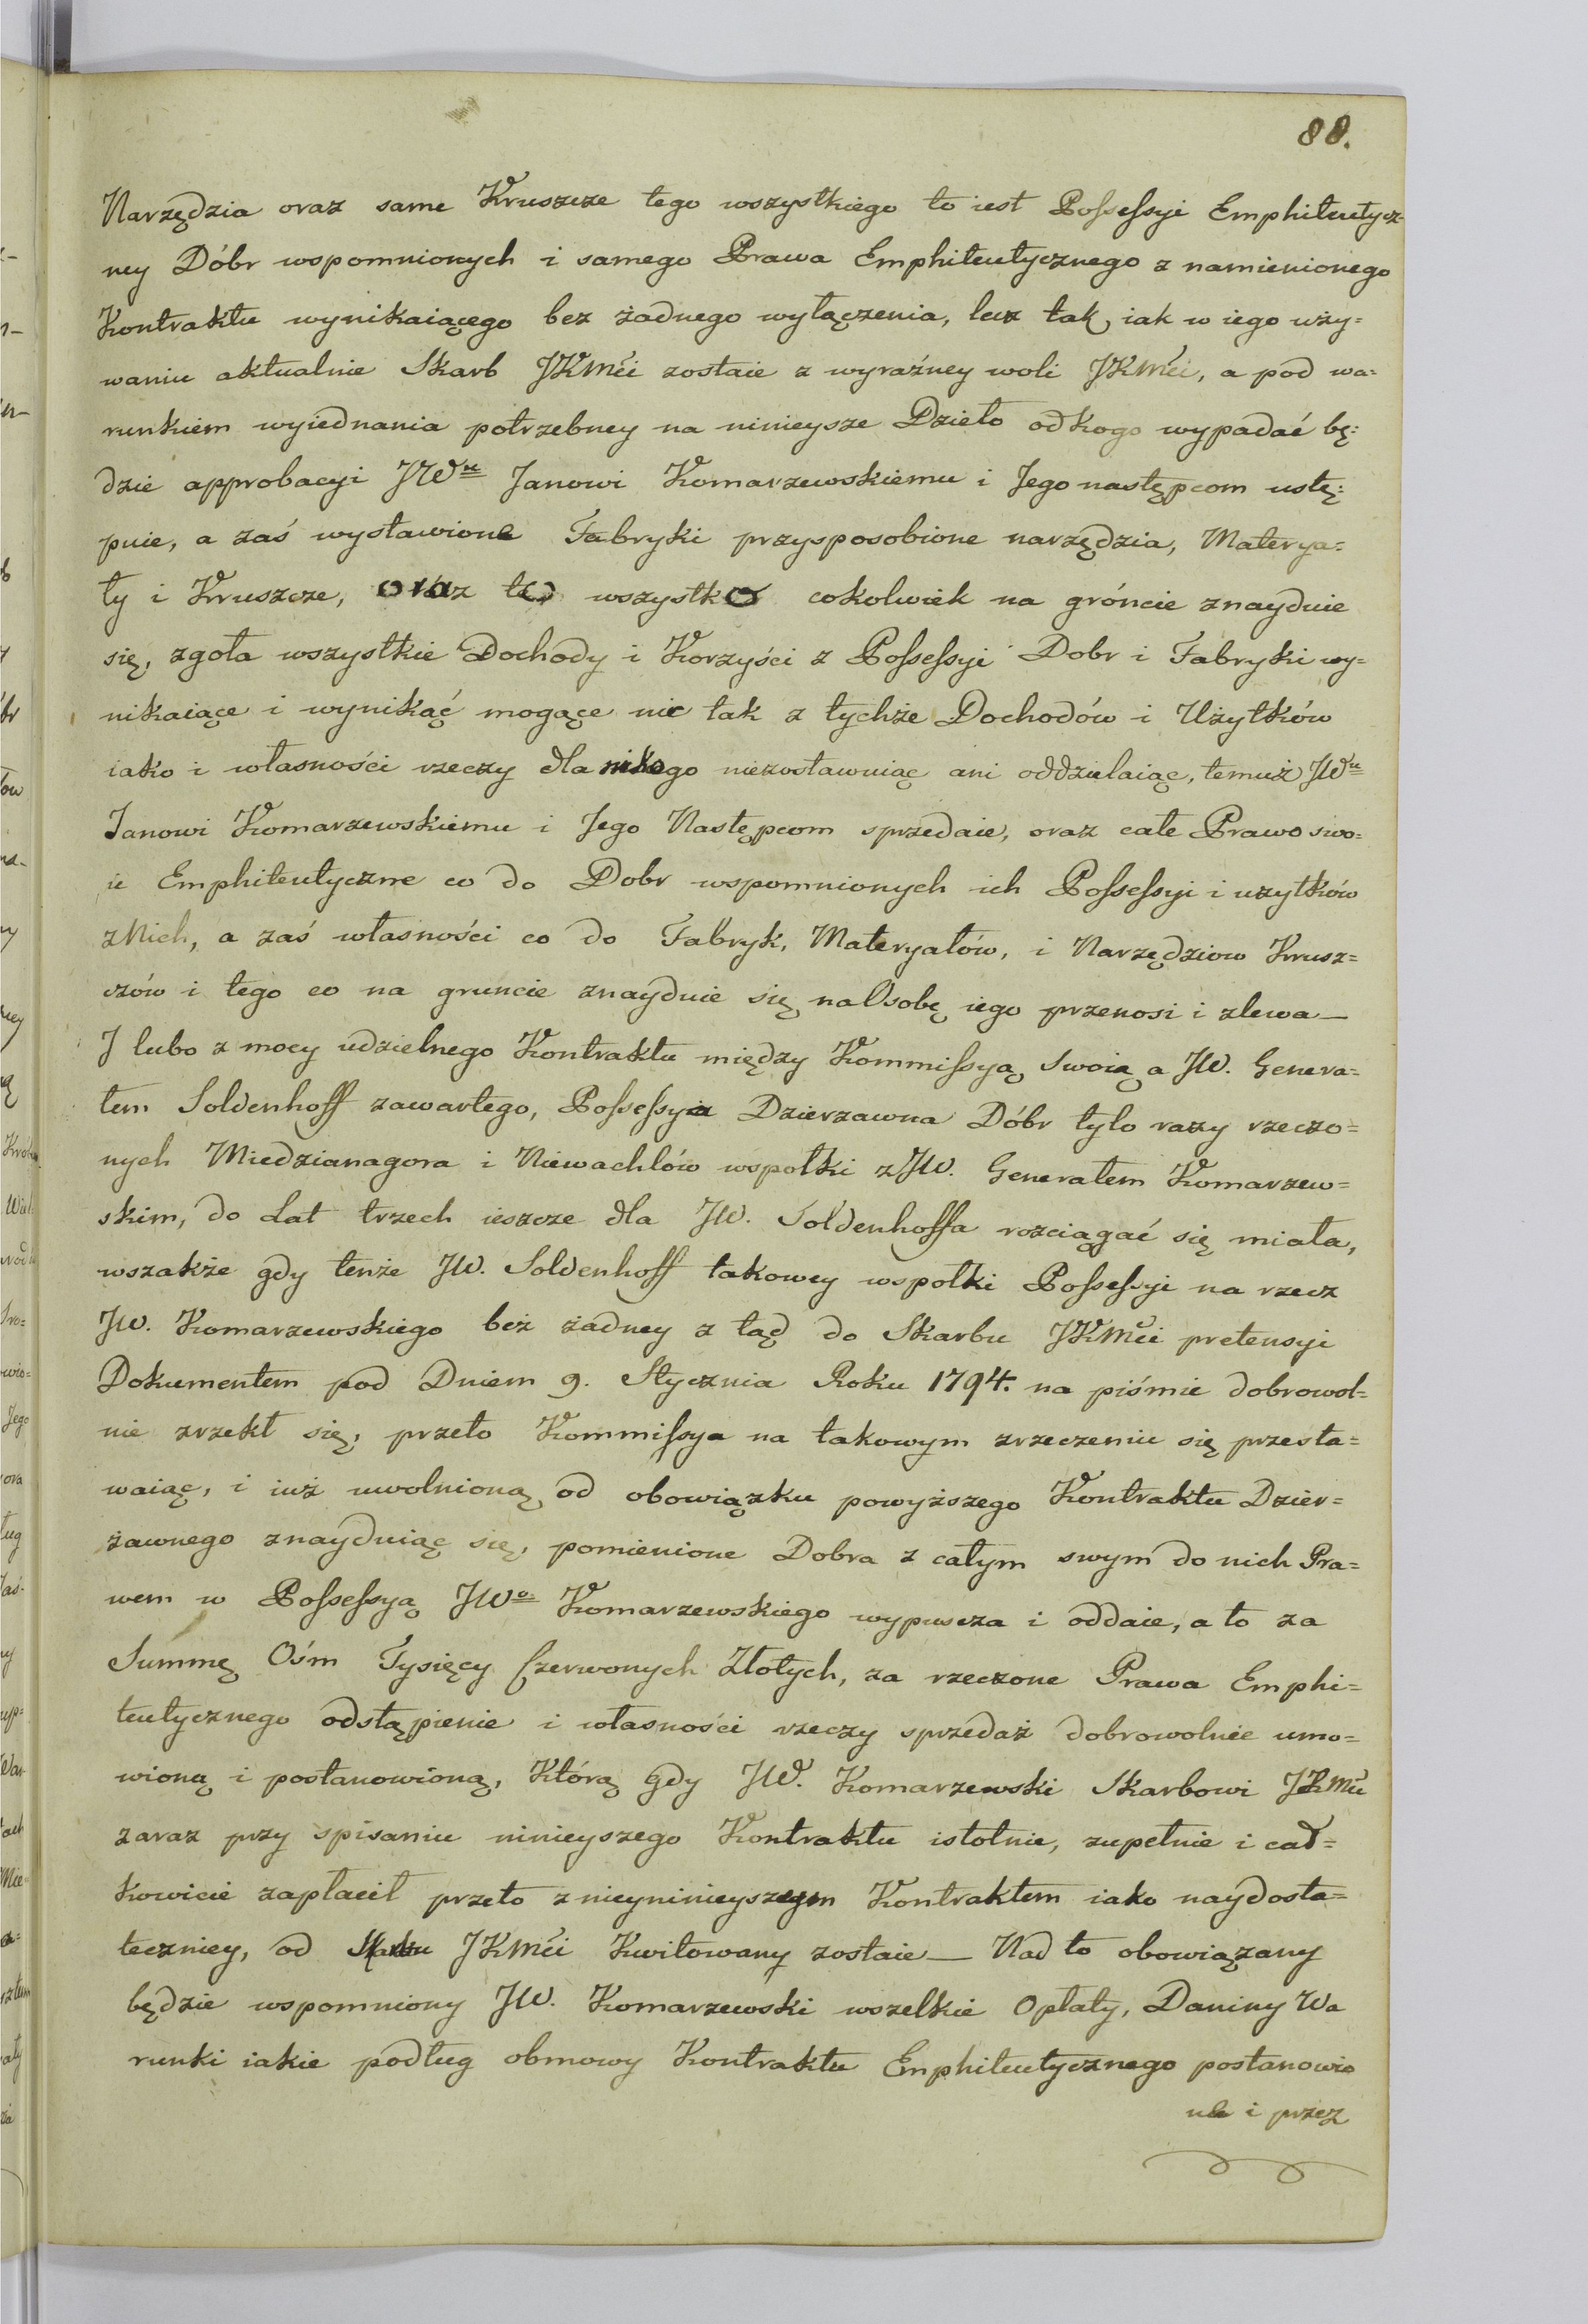 88.
Narzędzia oraz same Kruszcze tego wszystkiego to iest Possessyi Emphiteutycz-
ney Dóbr wspomnionych i samego Prawa Emphiteutycznego z namienionego
Kontraktu wynikaiącego bez żadnego wyłączenia, lecz tak, iak w iego uży=
waniu aktualnie Skarb JKMći zostaie z wyraźney woli JKMći, a pod wa=
runkiem wyiednania potrzebney na ninieysze Dzieło odkogo wypadać bę=
dzie approbacyi JWu Janowi Komarzewskiemu i Jego następcom ustę=
puie, a zaś wystawione Fabryki przysposobione narzędzia, Materya=
ły i Kruszcze, oraz to wszystko cokolwiek na gróncie znayduie
się, zgoła wszystkie Dochody i Korzyści z Possessyi Dobr i Fabryki wy=
nikaiące i wynikać mogące nic tak z tychże Dochodów i Użytków
iako i własności rzeczy dla nikogo niezostawuiąc ani oddzielaiąc, temuż JWu
Janowi Komarzewskiemu i Jego Następcom sprzedaie, oraz całe Prawo swo=
ie Emphiteutyczne co do Dobr wspomnionych ich Possessyi i uzytków
z Nich, a zaś własności co do Fabryk, Materyałów, i Narzędziow Krusz=
czów i tego co na gruncie znayduie się na Osobę iego przenosi i zlewa —
I lubo z mocy udzielnego Kontraktu między Kommissyą Swoią a JW. Genera=
łem Soldenhoff zawartego, Possessyia Dzierzawna Dóbr tylo razy rzeczo=
nych Miedzianagora i Niewachlów wspołki z JW. Generałem Komarzew=
skim, do Lat trzech ieszcze dla JW. Soldenhoffa rozciągać się miała,
wszakże gdy tenże JW. Soldenhoff takowey wspołki Possessyi na rzecz
JW. Komarzewskiego beż żadney z tąd do Skarbu JKMći pretensyi
Dokumentem pod Dniem 9. Stycznia Roku 1794. na piśmie dobrowol=
nie zrzekł się, przeto Kommissya na takowym zrzeczeniu się przesta=
waiąc, i iuż uwolnioną od obowiązku powyższego Kontraktu Dzier=
żawnego znayduiąc się, pomienione Dobra z całym swym do nich Pra=
wem w Possessyą JWo Komarzewskiego wypuscza i oddaie, a to za
Summę Ośm Tysięcy Czerwonych Złotych, za rzeczone Prawa Emphi=
teutycznego odstąpienie i własności rzeczy sprzedaż dobrowolnie umo=
wioną i postanowioną, Którą gdy JW. Komarzewski Skarbowi JKMći
zaraz przy spisaniu ninieyszego Kontraktu istotnie, zupełnie i cał=
kowicie zapłacił przeto z nieyninieyszym Kontraktem iako naydosta=
teczniey, od Skarbu JKMći Kwitowany zostaie — Nad to obowiązany
będzie wspomniony JW. Komarzewski wszelkie Opłaty, Daniny Wa
runki iakie podług obmowy Kontraktu Emphiteutycznego postanowio
ne i przez